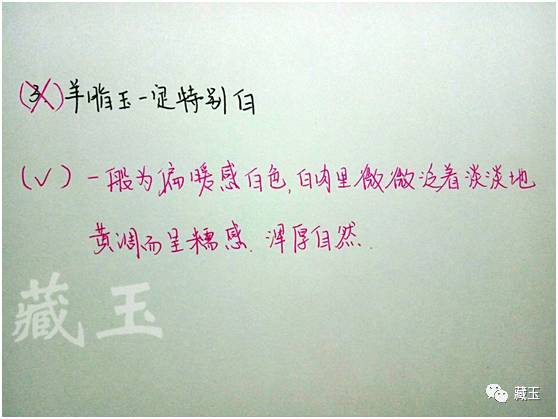 (3.)羊脂玉一定特别白
(✓)一般为偏暖感白色,白肉里微微泛着淡淡地
黄润而呈糯感.浑厚自然.
藏玉
藏玉